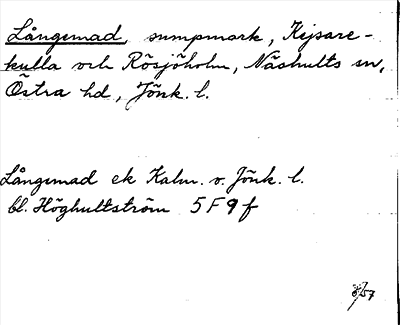 Långemad, sumpmark, Kejsare-
kulla och Rösjöholm, Näshults sn,
Östra hd, Jönk. l.
Långemad ek Kalm. o. Jönk. l.
bl. Höghultström 5F9f